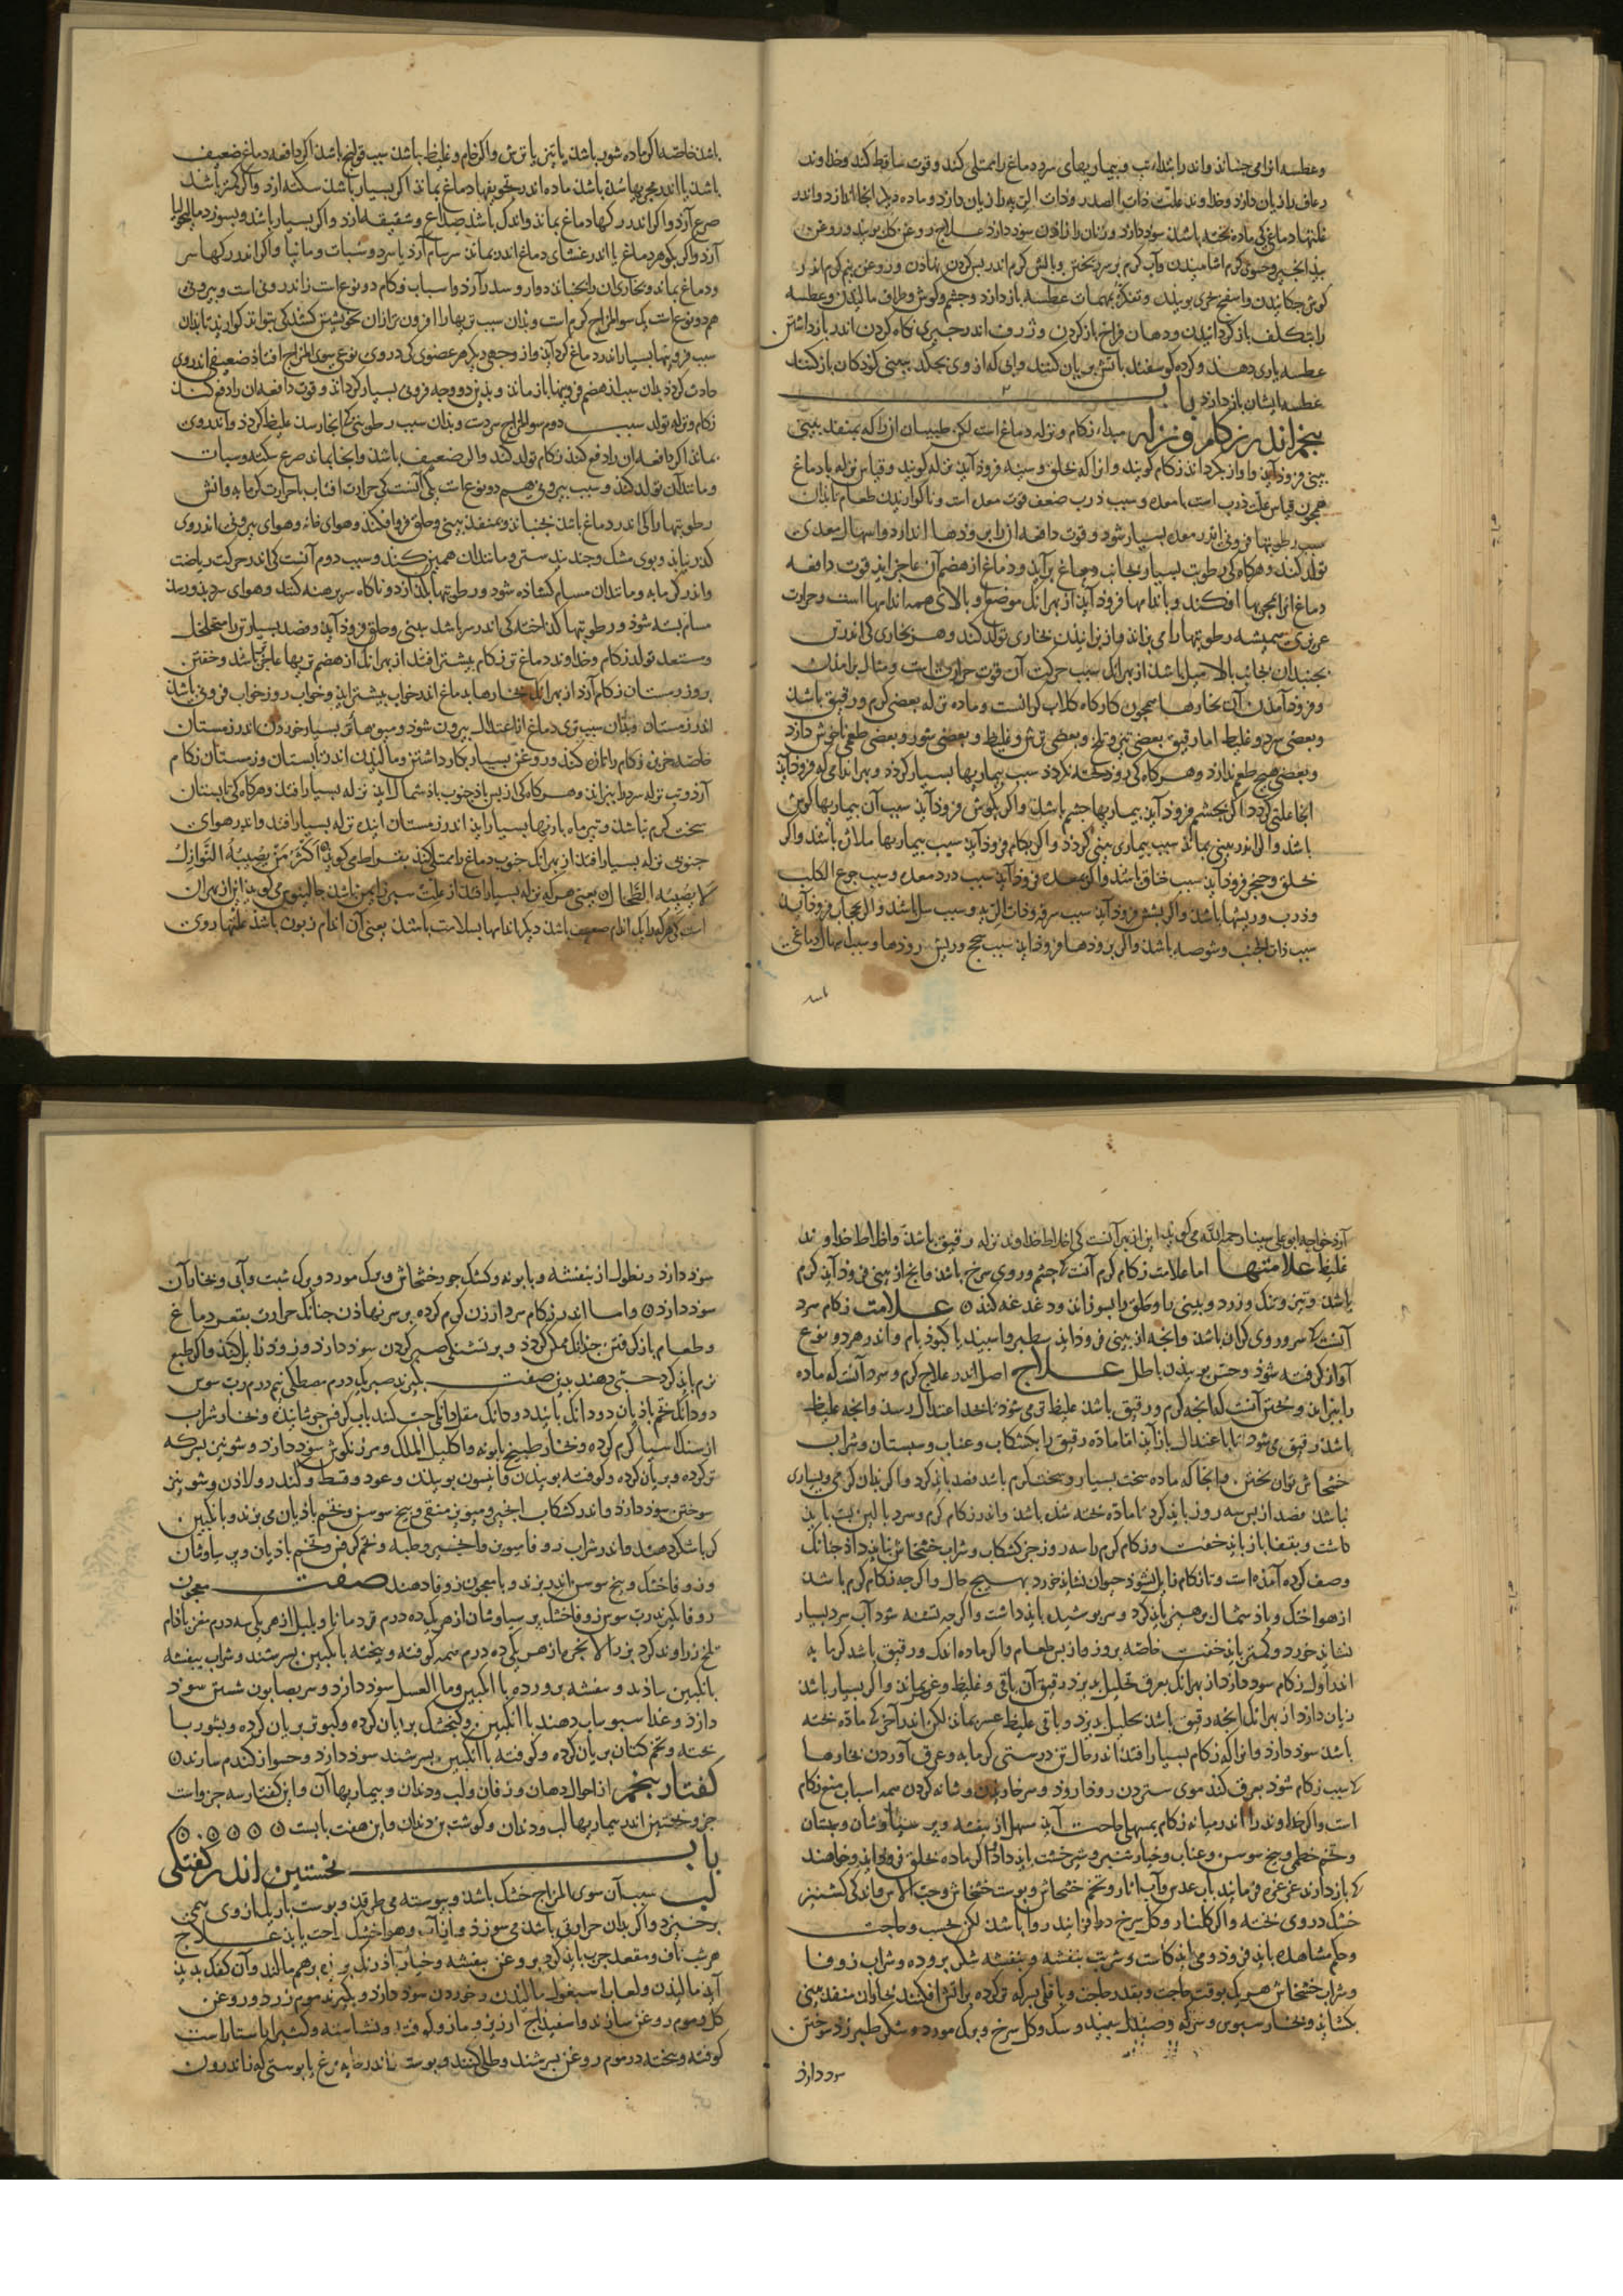 وعطسه را می جنباند واندر ابتداء تب وبیماریهای سرد دماغ را ممتلی کند وقوت ساقط کند وخداوند
رعاف را زیان دارد وخداوند علت ذات الصدر وذات الریه را زیان دارد وماده دیگر انجا اندازد واندر
علتهاء دماغی که ماده پخته باشد سود دارد وزنان را زادن سود دارد علاج روغن کل بویند وروغن
بید انجیر وحسوی کرم اشامیدن وآب کرم بر سر ریختن وبالش کرم اندر پس کردن نهادن وروغن نیم کرم اندر
کوش چکانیدن واسفنج بحری بوییدن وتفکر بمهمات عطسه باز دارد وچشم وکوش واطراف مالیدن وعطسه
را بتکلف باز کردانیدن ودهان فراخ باز کردن وژرف اندر چیزی نکاه کردن اندر باز داشتن
عطسه یاری دهند وکرده کوسفند باتش بریان کنند وابی که از وی بچکد ببینی کودکان باز کنند
عطسه ایشان باز دارد باب
پنجم اندر زکام ونزله مبداء زکام ونزله دماغ است لکن طبیبان انرا که بمنفذ بینی
بینی فرود آید واواز بکرداند زکام کویند وانرا که بحلق وسینه فرود آید نزله کویند وقیاس نزله با دماغ
همچون قیاس علت ذرب است با معده وسبب ذرب ضعف قوت معده است وناکواریدن طعام تا بدان
سبب رطوبتها فزونی اندر معده بسیار شود وقوت دافعه انرا برودها اندازد واسهال معدی
تولد کند وهرکاه که رطوبت بسیار بجانب دماغ برآید ودماغ از هضم آن عاجز اید قوت دافعه
دماغ انرا بمجریها افکند وباندامها فرود آید از بهر انک موضع او بالای همه اندامها است وحرارت
غریزی همیشه رطوبتها را می پزاند واز پزانیدن بخاری تولد کند وهر بخاری که اندر تن
بجنبد ان بجانب بالا میل باشد از بهر انک سبب حرکت آن قوت حرارت است ومثال بر امدن
وفرود آمدن آن بخارها همچون کارکاه کلاب کرانست وماده نزله بعضی کرم ورقیق باشد
وبعضی سرد وغلیظ اما رقیق بعضی تیز وتلخ وبعضی ترش وغلیظ وبعضی شور وبعضی طعمی ناخوش دارد
وبعضی هیچ طعم ندارد وهرکاه که زود پخته نکردد سبب بیماریها بسیار کردد وبهر اندامی که فرود آید
انجا علتی کردد اکر بچشم فرود آید بیماریها چشم باشد واکر بکوش فرود آید سبب آن بیماریها کوش
باشد واکر اندر بینی بماند سبب بیماری بینی کردد واکر بکام فرود آید سبب بیماریها ملازه باشد واکر
بحلق وحنجره فرود آید سبب خناق باشد واکر بمعده فرود آید سبب درد معده وسبب جوع الکلب
وذرب وریشها باشد واکر بشش فرود آید سبب سرفه وذات الریه وسبب سل باشد واکر بحجاب فرود آید
سبب ذات الجنب وشوصه باشد واکر برودها فرود اید سبب سحج وریش رودها وسبب اسهال دماغی
باشد
باشد خاصه اکر ماده شور باشد یا تیز یا ترش واکر خام وغلیظ باشد سبب قولنج باشد اکر دافعه دماغ ضعیف
باشد یا اندر مجریها سده باشد ماده اندر تجویفها دماغ بماند اکر بسیار باشد سکته ارد واکر کمتر باشد
صرع آرد واکر اندر رکها دماغ بماند واندک باشد صداع وشقیقه ارد واکر بسیار باشد وبسوزد مالیخولیا
آرد واکر بکوهر دماغ یا اندر غشای دماغ اندر بماند سرسام آرد یا سرد وسبات ومانیا واکر اندر رکها سر
ودماغ بماند وبخاری ان را بجنباند دوار وسدر آرد واسباب زکام دو نوع است زاندرونی است وبیرونی
هم دو نوع است یک سوء المزاج کرم است وبدان سبب تریها را افزون تر از ان بخویشتن کشد که بتواند کوارید تا بدان
سبب فزونیها بسیار اندر دماغ کرد آید واز وجهی دیکر هر عضوی که در وی نوعی سوی المزاج افتاد ضعیفی اندر وی
حادث کردد بدان سبب از هضم فزونیها باز ماند وبدین دو وجه فزونی بسیار کرداند وقوت دافعه ان را دفع کند
زکام ونزله تولد سبب دوم سوء المزاج سردست وبدان سبب رطوبتی که انجا رسد غلیظ کردد واندر وی
بماند اکر دافعه ان را دفع کند زکام تولد کند واکر ضعیف باشد وانجا بماند صرع وسکته وسبات
ومانند آن تولد کند وسبب بیرونی هم دو نوع است یکی آنست که حرارت افتاب یا حرارت کرمابه واتش
رطوبتها را که اندر دماغ باشد بجنباند وبمنفذ بینی وحلق فرو افکند وهوای خانه وهوای بیرونی اندر وی
کذر نیابد وبوی مشک وجند بیدستر ومانند ان همین کند وسبب دوم آنست که اندر حرکت ریاضت
واندر کرمابه ومانند ان مسام کشاده شود ورطوبتها بکدازد وناکاه سر برهنه کنند وهوای سرد بدو رسد
مسام بسته شود ورطوبتها کداخته که اندر سر باشد ببینی وحلق فرود آید وفصد بسیار تن را متخلخل
ومستعد تولد زکام وخداوند دماغ تر زکام بیشتر افتد از بهر انک از هضم تریها عاجز باشد وخفتن
بروز زمستان زکام آرد از بهر انک بخارها بدماغ اندر خواب بیشتر اید وخواب روز خواب فزونی باشد
اندر زمستان وبدان سبب تری دماغ از اعتدال بیرون شود ومیوهاء تر بسیار خوردن اندر زمستان
خاصه خربزه زکام را تازه کند وروغن بسیار بکار داشتن ومالیدن اندر تابستان وزمستان زکام
آرد وتب نزله سرد را بپزاند وهرکاه که از پس باد جنوب باد شمال اید نزله بسیار افتد وهرکاه که تابستان
سخت کرم نباشد وتیر ماه بارانها بسیار اید اندر زمستان اینده نزله بسیار افتد واندر هوای
جنوبی نزله بسیار افتد از بهر انک جنوب دماغ را ممتلی کند بقراط می کوید اکثر من یصیبه النوازل
لا یصیبه الطحال یعنی هر که نزله بسیار افتد از علت سپرز ایمن باشد جالینوس می کوید این از بهر ان
است که هر که را یک اندام ضعیف باشد دیکر اندامها بسلامت باشد یعنی آن اندام زبون باشد علتها روی
آرد خواجه ابو علی سینا رحمه الله می کوید این از بهر آنست که اخلاط خداوند نزله رقیق باشد واخلاط خداوند
غلیظ علامتها اما علامت زکام کرم آنست که چشم وروی سرخ باشد وانچ از بینی فرود آید کرم
باشد وتیز وتنک وزرد وبینی را وحلق را بسوزاند ودغدغه کند علامت زکام سرد
آنست که سر وروی کران باشد وانچه از بینی فرود اید سطبر واسپید یا کبود فام واندر هر دو نوع
آواز کرفته شود وحس بوییدن باطل علاج اصل اندر علاج کرم وسرد آنست که ماده
را بپزاند وپختن آنست که انچه کرم ورقیق باشد غلیظتر می شود تا بحد اعتدال رسد وانچه غلیظ
باشد رقیق می شود تا باعتدال باز آید اما ماده رقیق را بکشکاب وعناب وسپستان وشراب
خشخاش توان پختن وانجا که ماده سخت بسیار وسخت کرم باشد فصد باید کرد واکر بدان کرمی وبسیاری
نباشد فصد از پس سه روز باید کرد تا ماده پخته شده باشد واندر زکام کرم وسرد بالین پست باید
داشت وبقفا باز باید خفت وزکام کرم را سه روز جز کشکاب وشراب خشخاش نباید داد چنانک
وصف کرده آمده است وتا زکام زایل نشود حیوان نشاید خورد بهیچ حال واکرچه زکام کرم باشد
از هوا خنک وباد شمال پرهیز باید کرد وسر پوشیده باید داشت واکرچه تشنه شود آب سرد بسیار
نشاید خورد وکمتر باید خفت خاصه بروز واز پس طعام واکر ماده اندک ورقیق باشد کرمابه
اندر اول زکام سود دارد از بهر انک بعرق تحلیل پذیرد رقیق آن وباقی غلیظ وعسر نماند واکر بسیار باشد
زیان دارد از بهر انک انچه رقیق باشد تحلیل پذیرد وباقی غلیظ عسر بماند لکن اندر آخر که ماده پخته
باشد سود دارد وانرا که زکام بسیار افتد اندر حال تن درستی کرمابه وعرق آوردن بخارها
که سبب زکام شود بعرق کند موی ستردن روز از روز وسر خاریدن وشانه کردن همه اسباب منع زکام
است واکر خداوند را اندر میانه زکام بمسهلی حاجت آید مسهل از بنفشه وپر سیاوشان وسپستان
وتخم خطمی وبیخ سوسن وعناب وخیار شنبر وشیر خشت باید داد واکر ماده بحلق فرو می اید وخواهند
که باز دارند غرغره فرمایند باب عدس وآب انار وتخم خشخاش وپوست خشخاش وحب الآس واندکی کشنیز
خشک در وی پخته واکر کلنار وکل سرخ در افزایند روا باشد لکن بحسب حاجت
وحکم مشاهده باید فرود می اید وشربت بنفشه وبنفشه شکر پرورده وشراب زوفا
وشراب خشخاش هر یک بوقت حاجت وبقدر حاجت وباقلی بسرکه تر کرده بر اتش افکنند بخار ان منفذ بینی
بکشاید وبخار سبوس وسرکه وصندل سپید وسک وکل سرخ وبرک مورد وشکر طبرزد سوختن
سود دارد
سود دارد ونطول از بنفشه وبابونه وکشک جو وخشخاش وبرک مورد وبرک شبت وآبی وبخار آن
سود دارد واما اندر زکام سرد ارزن کرم کرده بر سر نهادن چنانک حرارت بقعر دماغ
وطعام باز کرفتن چندانک ممکن کردد وبر تشنکی صبر کردن سود دارد وزود زایل کند واکر طبع
نرم باید کرد حبی دهند بدین صفت بکیرند صبر یک درم مصطکی نیم درم رب سوس
دو دانک تخم بادیان دو دانک باید دو دانک مقل دانکی حب کنند باب کرفس جوشانیده وبخار شراب
از سنک اسیا کرم کرده وبخار طبیخ بابونه واکلیل الملک ومرزنکوش سود دارد وشونیز بسرکه
تر کرده وبریان کرده وکوفته بوییدن وانیسون بوییدن وعود وقسط وکندر ولادن وشونیز
سوختن سود دارد واندر کشکاب انجیر ومویز منقی وبیخ سوسن وتخم بادیان می پزند وبا انکبین
کر باشکر دهند واندر شراب زوفا سوسن وانجیر وحلبه وتخم کرفس وتخم بادیان وپر سیاوشان
وزوفا خشک وبیخ سوسن اندر پزند وبا معجون زوفا دهند صفت معجون
زوفا بکیرند رب سوس وزوفا خشک پر سیاوشان از هر یک ده درم قردمانا وپلپل از هر یکی سه درم مغز بادام
تلخ زراوند کرد بزر الانجره از هر یکی ده درم همه کوفته وبیخته با انکبین بسرشند وشراب بنفشه
بانکبین سازند وبنفشه پرورده با انکبین وماء العسل سود دارد وسر بصابون شستن سود
دارد وغذا سبوساب دهند با انکبین وکنجشک بریان کرده وکبوتر بریان کرده وبشوربا
پخته وتخم کتان بریان کرده وکوفته با انکبین بسرشند سود دارد وحسو از کندم سازند
کفتار پنجم از احوال دهان وزفان ولب ودندان وبیماریها آن واین کفتار سه جزو است
جزو نخستین اندر بیماریها لب ودندان وکوشت بن دندان واین هفت بابست
باب نخستین اندر کفتکی
لب سبب آن سوی المزاج خشک باشد وپیوسته می طرقد وپوست باریک از وی همی
برخیزد واکر بدان حرارتی باشد می سوزد واز آب وهوا خنک راحت یابد علاج
هر شب ناف ومقعد چرب باید کرد بروغن بنفشه وخیار بادرنک بر هم مالند وآن کفک بدید
آید مالیدن ولعاب اسبغول مالیدن وخوردن سود دارد وبکیرند موم زرد وروغن
کل وموم روغن سازند واسفیداج ارزیز ومازو کوفته ونشاسته وکثیرا راستاراست
کوفته وبیخته در موم روغن بسرشند وطلی کنند وپوست اندر خایه مرغ یا پوستی که اندرون